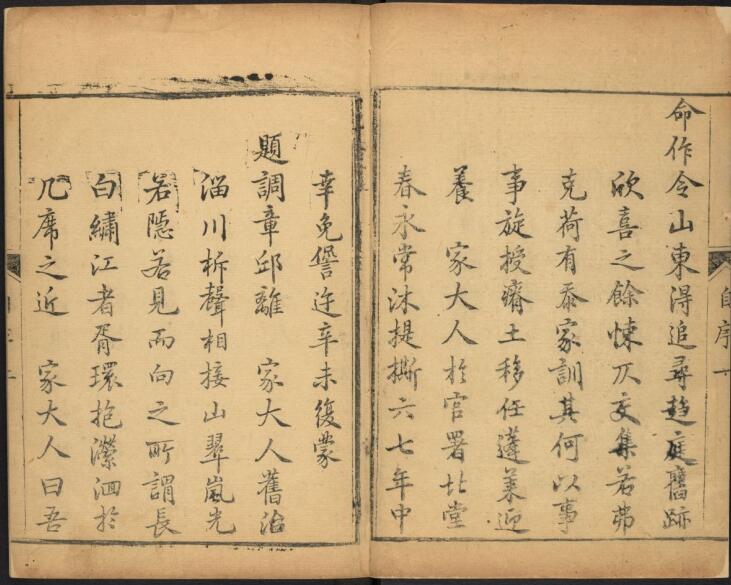 命作令山東得追尋趋庭舊跡
欣喜之餘悚仄交集若弗
克荷有忝家訓其何以事
事旋授濟土移任蓬萊迎
養 家大人於官署北堂
春永常沐提撕六七年中
自序
幸免諐迕辛未復蒙
題調章邱離 家大人舊治
淄川柝聲相接山翠嵐光
若隱若見而向之所謂長
白繡江者胥環抱瀠洄於
几席之近 家大人曰吾